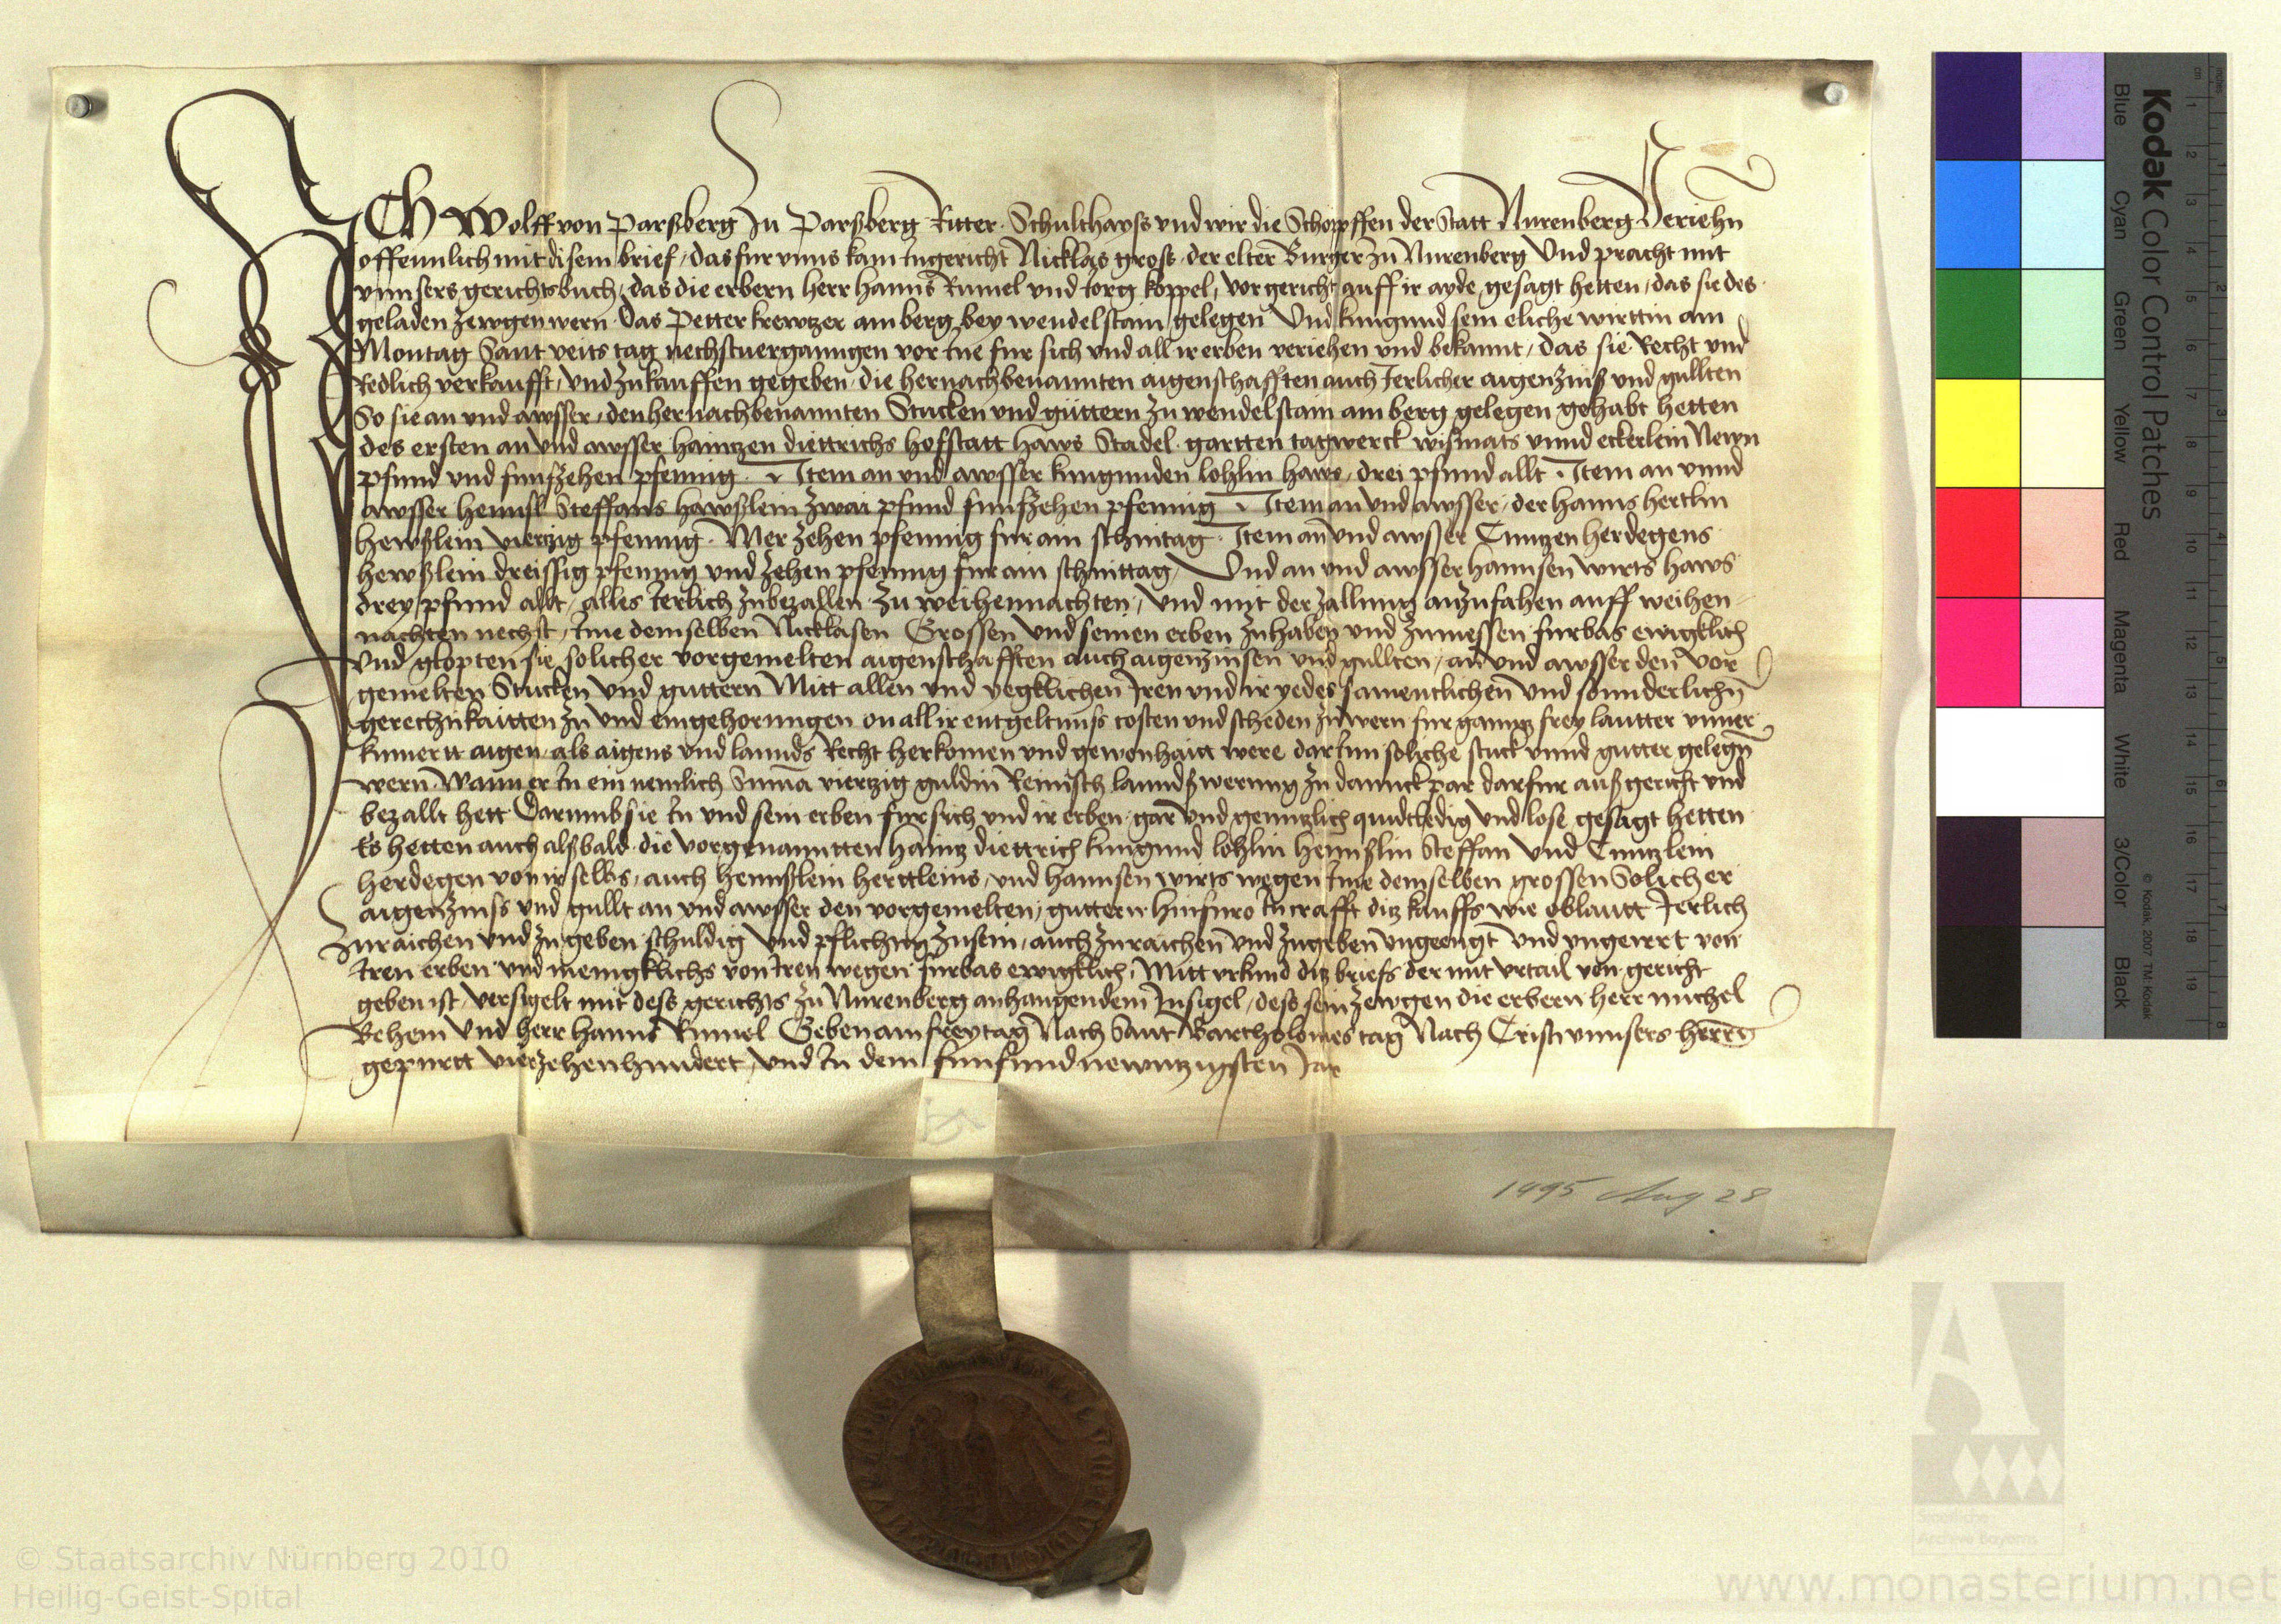 ICh Wolff von Parsberg zu Parsberg Ritter Schulthayss vnd wir die Schopffen der Statt Nurenberg Veriehn
offennlich mit disem brief, das fur vnns kam Inn gericht Nicklas gross der elter Burger zu Nurenberg Vnd pracht mit
vnnsers gerichtsbuch, das die erbern herr Hanns Rumel vnd Jorg koppel, vor gericht auff ir ayde gesagt hetten, das sie des
geladen zewgen wern Das Petter krewtzer am berg bey wendelstain gelegen Vnd kungund sein eliche wirttin am
Montag Sant veits tag nechstuergangen vor Ine fur sich vnd all ir erben veriehen vnd bekannt, das sie Recht vnd
Redlich verkaufft, vnd zukauffen gegeben, die hernachbenannten aigenschafften auch Jerlicher aigenzins vnd gullten
So sie an vnd awsser, den hernachbenannten Stucken vnd güttern zu wendelstain am berg gelegen gehabt hetten
des ersten an vnd awsser haintzen diettrichs hofstatt haws Stadel gartten tagwerck wißmats vnnd eckerlein Newn
pfund vnd funfzehen pfennig Item an vnd awsser kungunden lohlin haws, drei pfund allt Item an vnnd
awsser hennsl Steffans hawßlein zwai pfund funfzehen pfennig Item an vnd awsser, der hanns hertlin
hewßlein viertzig pfennig Mer zehen pfennig fur ain schnitag Item an vnd awsser Cuntzen herdegens
hewßlein dreissig pfennig vnd zehen pfennig fur ain schnittag, Vnd an vnd awsser hannsen wirts haws
drey pfund allt, alles Jerlich zubezallen zu weihennachten, vnd mit der zallung anzufahen auff weihen
nachten nechst, Ime demselben Nicklasen Grossen vnd seinen erben zuhaben vnd zunießen furbas ewigklich
Vnd glopten sie solicher vorgemelten aigenschafften auch aigenzinsen vnd gullten, an vnd awsser den vor
gemelten Stucken vnd guttern Mitt allen vnd yegklichen Iren vnd ir yedes samentlichen vnd sonnderlichn
gerechtikaitten zu vnd eingehorungen on all ir entgeltnuss costen vnd scheden zu wern fur ganntz frey lautter vnuer
kumertt aigen, als aigens vnd lannds Recht herkomen vnd gewonhait were darInn soliche stuck vnnd gutter gelegn
wern Wann er In ein nemlich Suma viertzig guldin Reinisch lanndßwerung zu danck par darfur außgericht vnd
bezallt hett Darumb sie In vnd sein erben fur sich vnd ir erben gar vnd genntzlich quidt ledig vnd lose gesagt hetten
Es hetten auch alßbald die vorgenanntten haintz diettrich kungund lohlin hennßlin Steffan vnd Cuntzlein
herdegen von ir selbs, auch hennßlein herttleins, vnd hannsen wirts wegen Ime demselben grossen Solicher
aigenzinss vnd gullt an vnd awsser den vorgemelten, guttern hinfuro In crafft ditz kauffs wie oblautt Jerlich
zuraichen vnd zugeben schuldig vnd pflichtig zusein, auch zuraichen vnd zugeben vngeengt vnd vngeirrt von
Iren erben vnd menigklichs von Iren wegen furbas ewigklich, Mitt vrkund ditz briefs der mit vrtail von gericht
geben ist, versigelt mit dess gerichts zu Nurenberg anhangendem Insigel, dess sein zewgen die erbern herr michel
Behem vnd herr hanns Rumel Geben am freytag Nach Sant Bartholomes tag Nach Cristi vnnsers herrn
gepurtt vierzehenhundert, vnd In dem funfundnewntzigsten Jar
1495 Aug 28
Kodak Color Control Patches
Blue Cyan Green Yellow Red Magenta White 3/Color Black
© Kodak, 2007 TM: Kodak
cm 1 2 3 4 5 6 7 8 9 10 11 12 13 14 15 16 17 18 19
inches 1 2 3 4 5 6 7 8
Staatliche
Archive Bayerns
© Staatsarchiv Nürnberg 2010
Heilig-Geist-Spital
www.monasterium.net